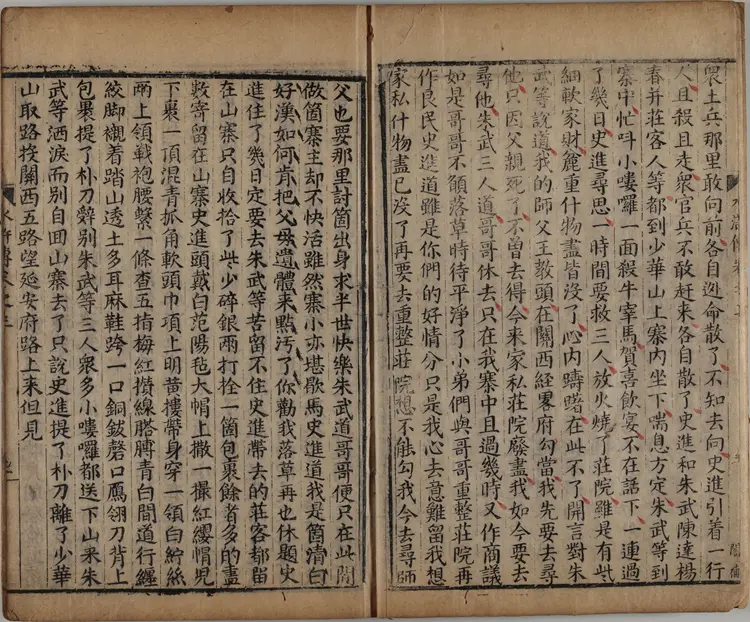 衆土兵那里敢向前各自迯命散了不知去向史進引着一行
人且殺且走衆官兵不敢赶來各自散了史進和朱武陳達楊
春并莊客人等都到少華山上寨內坐下喘息方定朱武等到
寨中忙呌小嘍囉一面殺牛宰馬賀喜飲宴不在話下一連過
了幾日史進尋思一時間要救三人放火燒了莊院雖是有些
細軟家財麄重什物盡皆沒了心內躊躇在此不了開言對朱
武等說道我的師父王教頭在關西経畧府勾當我先要去尋
他只因父親死了不曾去得今來家私莊院廢盡我如今要去
尋他朱武三人道哥哥休去只在我寨中且過幾時又作商議
如是哥哥不願落草時待平淨了小弟們與哥哥重整莊院再
作良民史進道雖是你們的好情分只是我心去意難留我想
家私什物盡已沒了再要去重整莊院想不能勾我今去尋師
父也要那里討箇出身求半世快樂朱武道哥哥便只在此間
做箇寨主却不快活雖然寨小亦堪歇馬史進道我是箇清白
好漢如何肯把父母遺體來點汚了你勸我落草再也休題史
進住了幾日定要去朱武等苦留不住史進帶去的莊客都留
在山寨只自收拾了些少碎銀兩打拴一箇包裹餘者多的盡
數寄留在山寨史進頭戴白范陽毡大帽上撒一撮紅纓帽児
下裹一頂混青抓角軟頭巾項上明黃縷帶身穿一領白紵絲
兩上領戰袍腰繫一條查五指梅紅攢線搭膊青白間道行纏
絞脚襯着踏山透土多耳麻鞋跨一口銅鈸磬口鴈翎刀背上
包裹提了朴刀辭別朱武等三人衆多小嘍囉都送下山來朱
武等洒淚而別自囬山寨去了只說史進提了朴刀離了少華
山取路投關西五路望延安府路上來但見